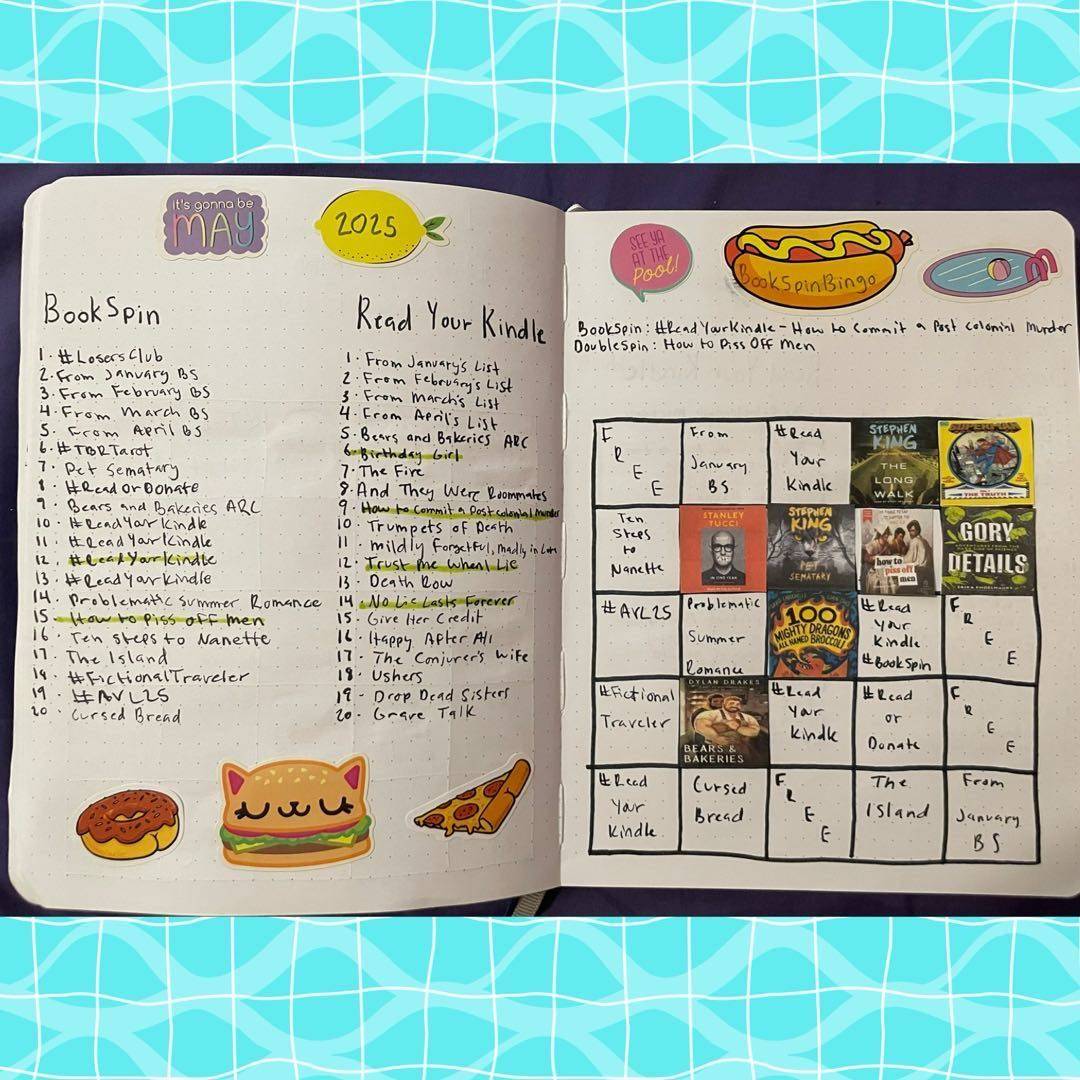 It's gonna be
MAY
2025
BookSpin
1. #LosersClub
2. From January BS
3. From February BS
4. From March BS
5. From April BS
6. #TBRTarot
7. Pet Sematary
8. #ReadOrDonate
9. Bears and Bakeries ARC
10. #ReadYourKindle
11. #ReadYourKindle
12. #ReadYourKindle
13. #ReadYourKindle
14. Problematic Summer Romance
15. How to Piss off Men
16. Ten Steps to Nanette
17. The Island
18. #FictionalTraveler
19. #AVL25
20. Cursed Bread
Read Your Kindle
1. From January's List
2. From February's List
3. From March's List
4. From April's List
5. Bears and Bakeries ARC
6. Birthday Girl
7. The Fire
8. And They Were Roommates
9. How to Commit a Postcolonial Murder
10. Trumpets of Death
11. Mildly Forgetful, Madly in
12. Trust Me When I Lie
13. Death Row
14. No Lie Lasts Forever
15. Give Her Credit
16. Happy After All
17. The Conjurer's Wife
18. Ushers
19. Drop Dead Sisters
20. Grave Talk
SEE YA
AT THE
Pool!
#BookSpinBingo
BookSpin: #ReadYourKindle - How to Commit a Post Colonial Murder
DoubleSpin: How to Piss Off Men
FREE
From
January
BS
#Read
Your
Kindle
STEPHEN
KING
THE
LONG
WALK
SUPERMAN
THE TRUTH
Ten
Steps
to
Nanette
STANLEY
TUCCI
IN ONE YEAR
STEPHEN
KING
PET
SEMATARY
how to
piss off
men
GORY
DETAILS
#AVL25
Problematic
Summer
Romance
100
MIGHTY DRAGONS
ALL NAMED BROCCOLI
#Read
Your
Kindle
#BookSpin
FREE
#Fictional
Traveler
DYLAN DRAKES
BEARS &
BAKERIES
#Read
Your
Kindle
#Read
or
Donate
FREE
#Read
Your
Kindle
Cursed
Bread
FREE
The
Island
From
January
BS